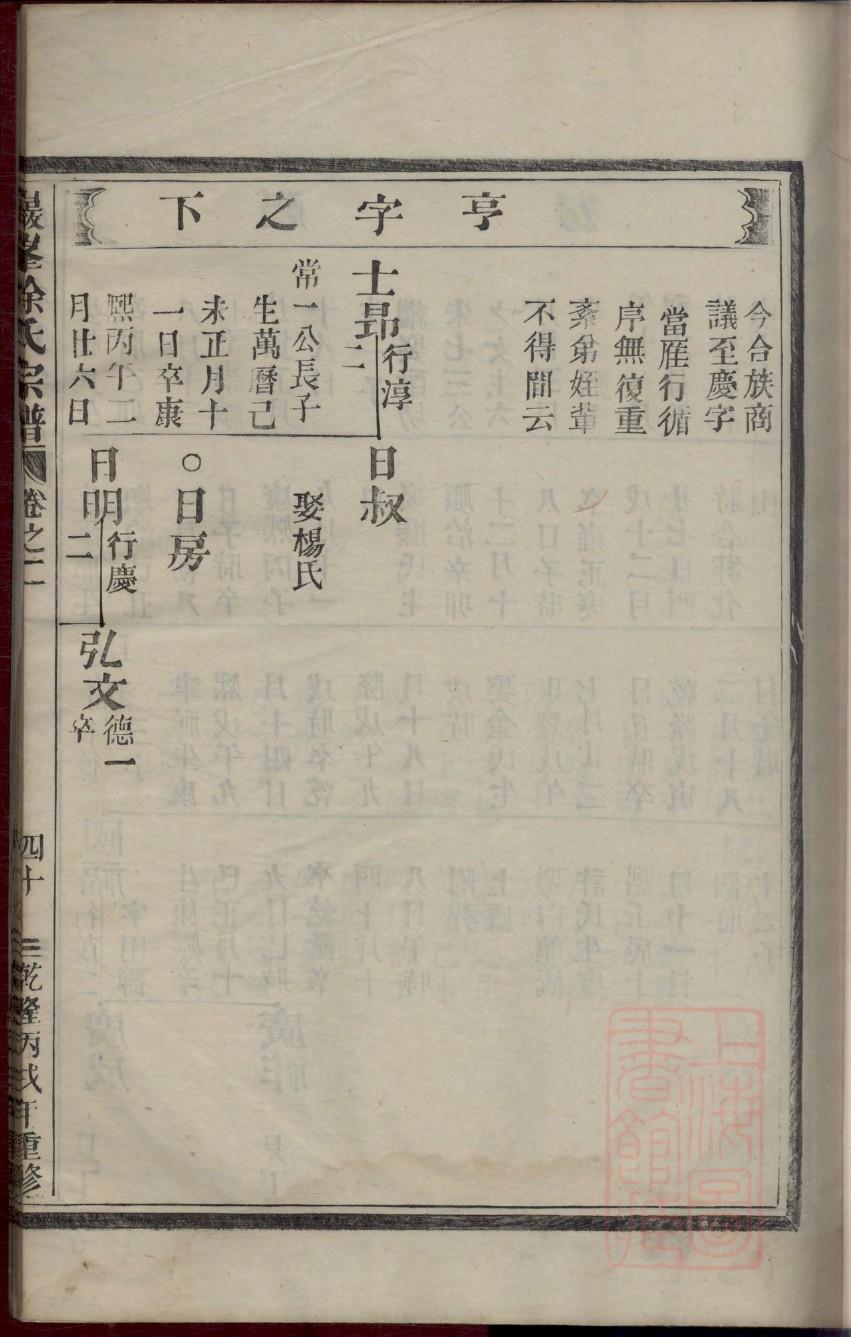 亨字之下
今合族商
議至慶字
當雁行循
序無復重
紊弟姪輩
不得間云
士昂行淳
二
常一公長子
生萬曆己
未正月十
一日卒康
熙丙午二
月廿六日
日叔
娶楊氏
○日房
日明行慶
二
弘文德一
卒
巖峯徐氏宗譜
卷之二
四十三
乾隆丙戌年重修
上海圖書館藏